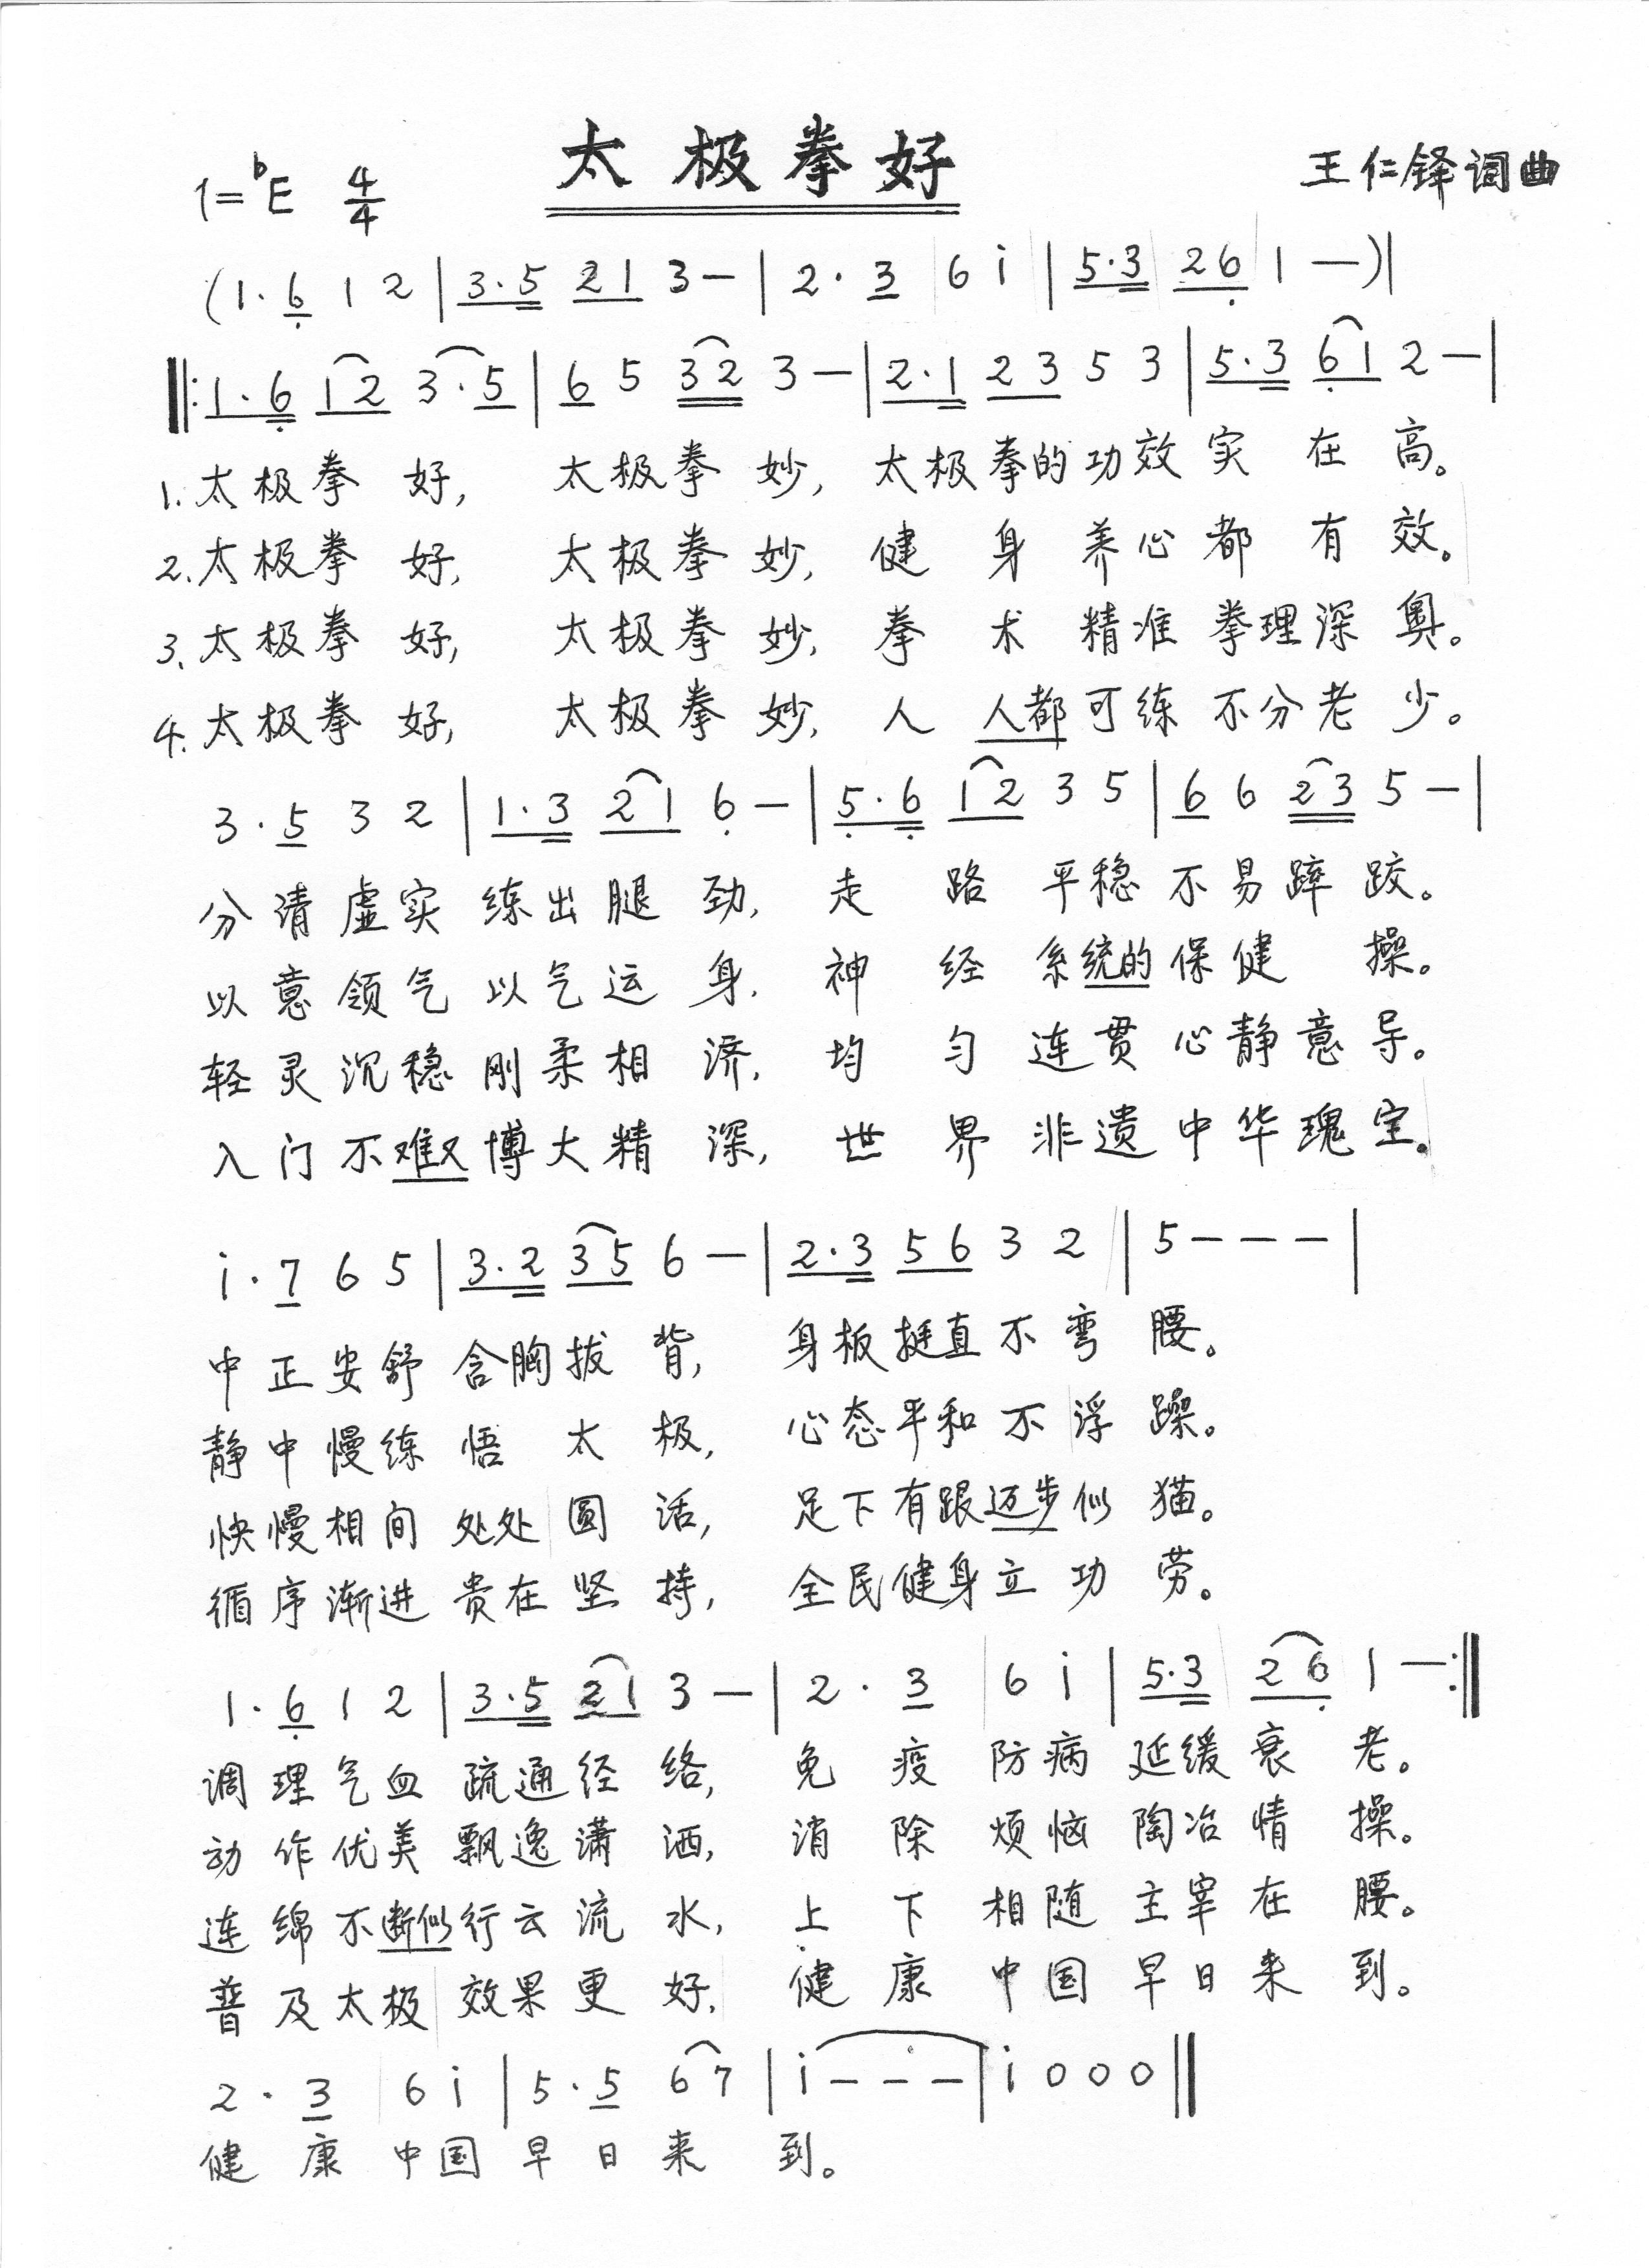 太极拳好
1=♭E 4/4
王仁铎词曲
(1. 6̣ 1 2 | 3.5 21 3 — | 2. 3 6 i | 5.3 26̣ 1 —)|
‖: 1.6̣ 12 3.5 | 6 5 32 3 — | 2.1 23 5 3 | 5.3 6̣1 2 — |
1.太极拳好, 太极拳妙, 太极拳的功效实在高。
2.太极拳好, 太极拳妙, 健身养心都有效。
3.太极拳好, 太极拳妙, 拳术精准拳理深奥。
4.太极拳好, 太极拳妙, 人人都可练不分老少。
3. 5 3 2 | 1.3 21 6̣ — | 5̣.6̣ 12 3 5 | 6 6 23 5 — |
分清虚实练出腿劲, 走路平稳不易踤跤。
以意领气以气运身, 神经系统的保健操。
轻灵沉稳刚柔相济, 均匀连贯心静意导。
入门不难又博大精深, 世界非遗中华瑰宝。
i. 7 6 5 | 3.2 35 6 — | 2.3 56 3 2 | 5 — — — |
中正安舒含胸拔背, 身板挺直不弯腰。
静中慢练悟太极, 心态平和不浮躁。
快慢相间处处圆活, 足下有跟迈步似猫。
循序渐进贵在坚持, 全民健身立功劳。
1. 6̣ 1 2 | 3.5 21 3 — | 2. 3 6 i | 5.3 26̣ 1 — :‖
调理气血疏通经络, 免疫防病延缓衰老。
动作优美飘逸潇洒, 消除烦恼陶冶情操。
连绵不断似行云流水, 上下相随主宰在腰。
普及太极效果更好, 健康中国早日来到。
2. 3 6 i | 5. 5 6 7 | i — — — | i 0 0 0 ‖
健康中国早日来到。